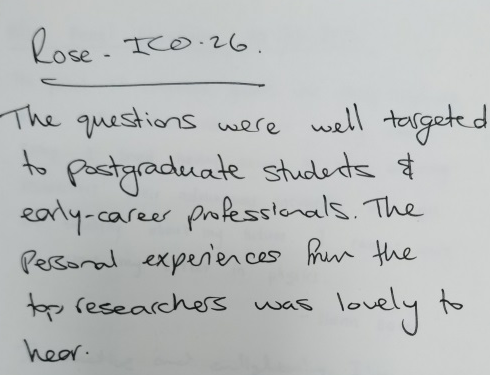 Rose - ICO.26.
The questions were well targeted
to postgraduate students &
early-career professionals. The
Personal experiences from the
top researchers was lovely to
hear.